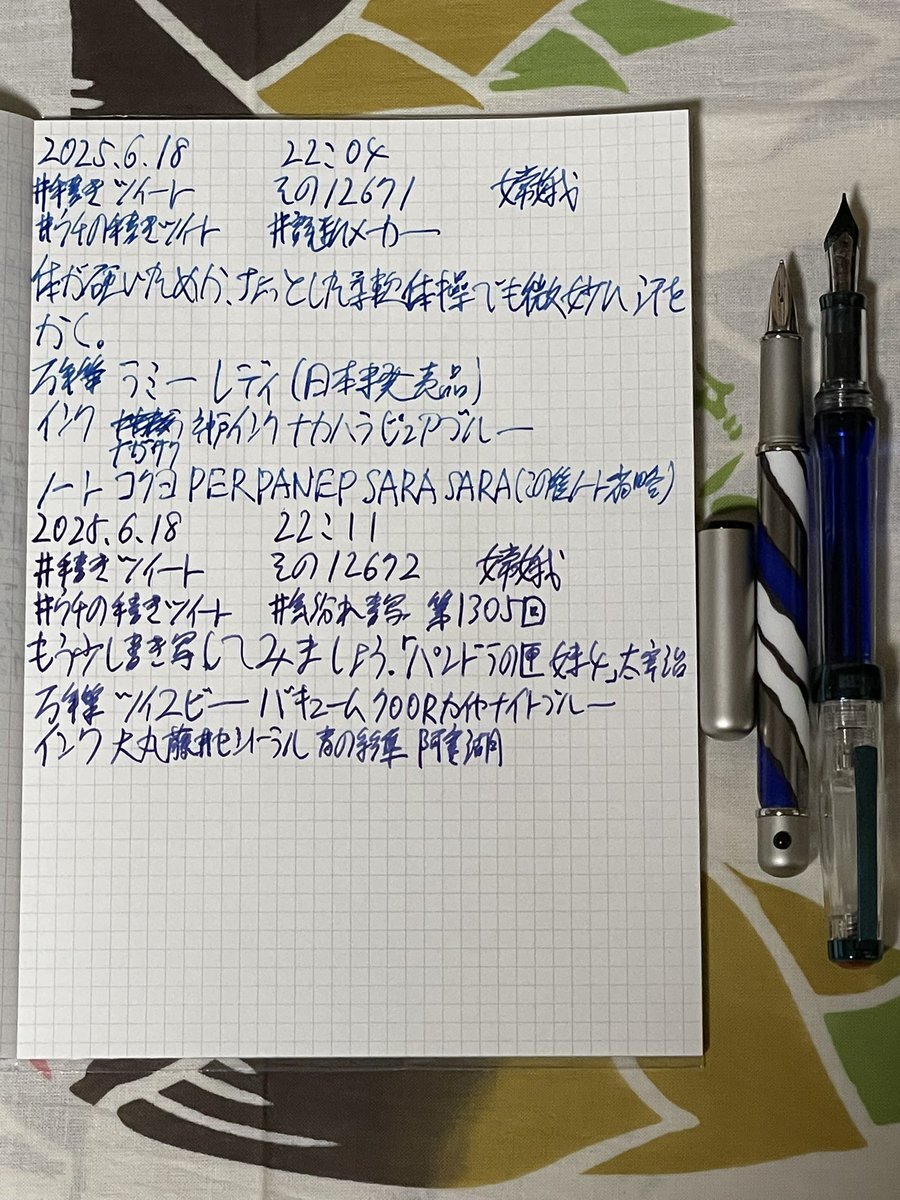 2025.6.18 22:04
#手書きツイート その12671 嫦娥
#うちの手書きツイート #詭弁メーカー
体が硬いためか、ちょっとした柔軟体操でも微妙に汗を
かく。
万年筆 ラミー レディ(日本未発売品)
インク 神戸インク ナカハラピュアブルー
ナガサワ
ノート コクヨ PERPANEP SARA SARA(この唯ノート省略)
2025.6.18 22:11
#手書きツイート その12672 嫦娥
#うちの手書きツイート #気紛れ書写 第1305回
もう少し書き写してみましょう。「パンドラの匣 妹4」太宰治
万年筆 ツイスビー バキューム700Rカイヤナイトブルー
インク 大丸藤井セントラル 青の彩隼 阿寒湖